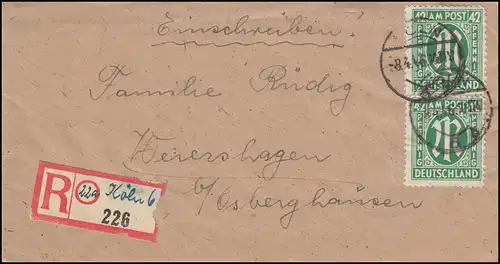 Einschreiben!
Familie Rüdig
Weiershagen
b/Osberghausen
42 AM POST 42
PFENNIG PFENNIG
DEUTSCHLAND
-8.4.
42 AM POST
PFENNIG PFENNIG
DEUTSCHLAND
R 22a Köln 6
226